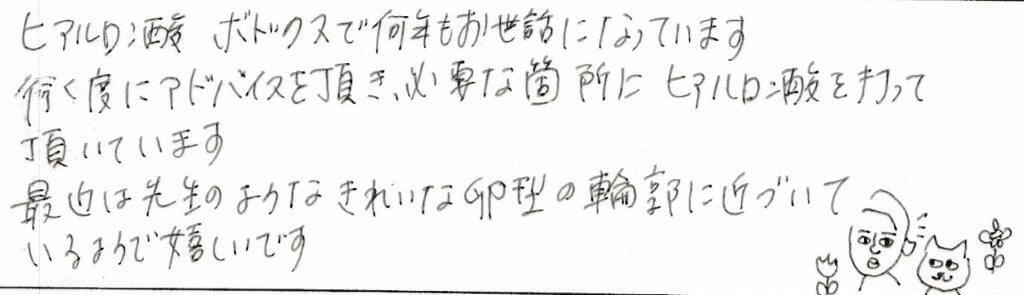 ヒアルロン酸 ボトックスで何年もお世話になっています
行く度にアドバイスを頂き、必要な箇所にヒアルロン酸を打って
頂いています
最近は先生のようなきれいな卵型の輪郭に近づいて
いるようで嬉しいです